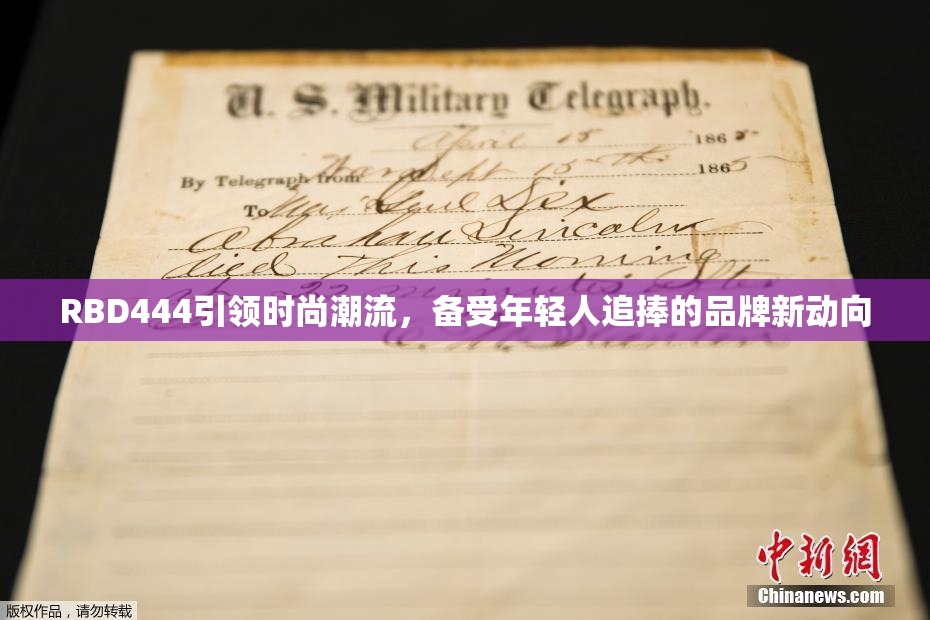 U. S. Military Telegraph.
April 15 1865
By Telegraph from War Dept 15th 1865
To Maj Genl Dix
Abraham Lincoln
died This Morning
RBD444引领时尚潮流，备受年轻人追捧的品牌新动向
中新网
Chinanews.com
版权作品，请勿转载